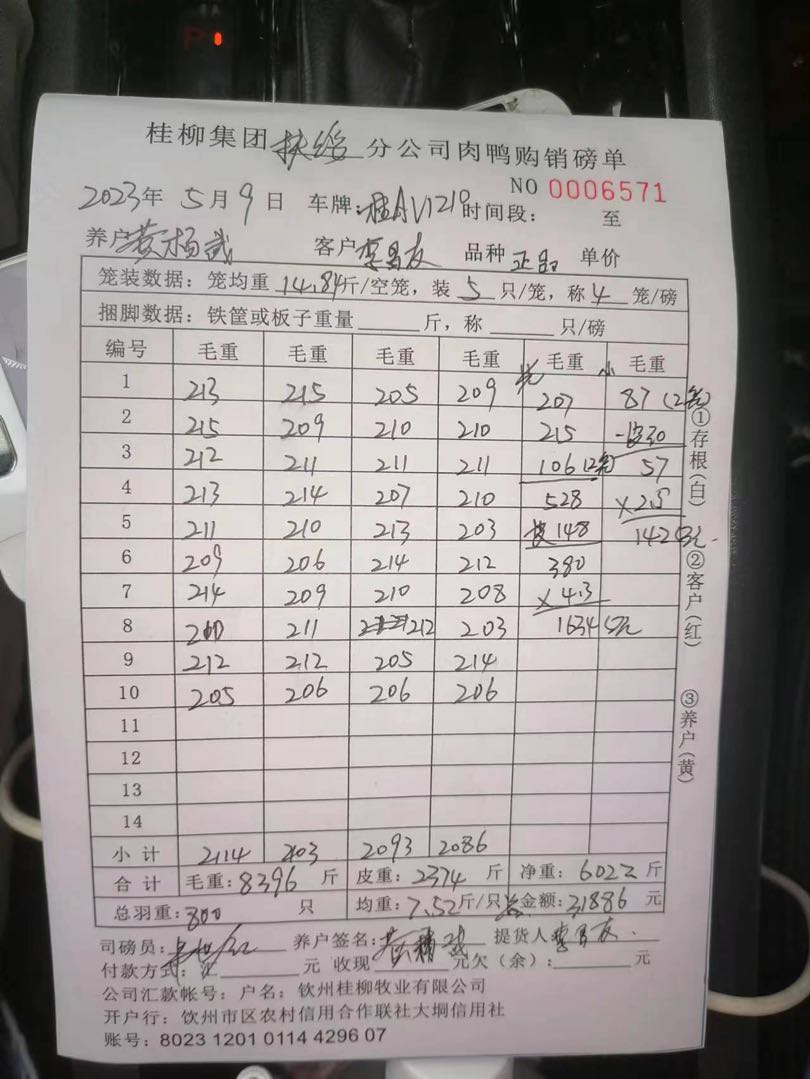 桂柳集团扶绥分公司肉鸭购销磅单
NO 0006571
2023年 5月 9日 车牌:桂AV1219 时间段: 至
养户 黄杨武 客户 李昌友 品种 正品 单价
笼装数据:笼均重 14.84斤/空笼,装 5 只/笼,称 4 笼/磅
捆脚数据:铁筐或板子重量 斤,称 只/磅
编号 毛重 毛重 毛重 毛重 毛重 小 毛重
1 213 215 205 209 207 87 (2笼)
2 215 209 210 210 215 -30
3 212 211 211 211 106 (2笼) 57
4 213 214 207 210 528 ×2.5
5 211 210 213 203 148 142元.
6 209 206 214 212 380
7 214 209 210 208 ×4.3
8 211 212 203 1634元
9 212 212 205 214
10 205 206 206 206
11
12
13
14
小计 2114 2093 2086
合计 毛重:8396 斤 皮重:2374 斤 净重:6022 斤
总羽重:800 只 均重:7.52斤/只 总金额:31886 元
司磅员: 养户签名: 提货人 李昌友.
付款方式: 汇 元 收现 元欠(余): 元
公司汇款帐号:户名:钦州桂柳牧业有限公司
开户行:钦州市区农村信用合作联社大垌信用社
账号:8023 1201 0114 4296 07
①存根(白)
②客户(红)
③养户(黄)